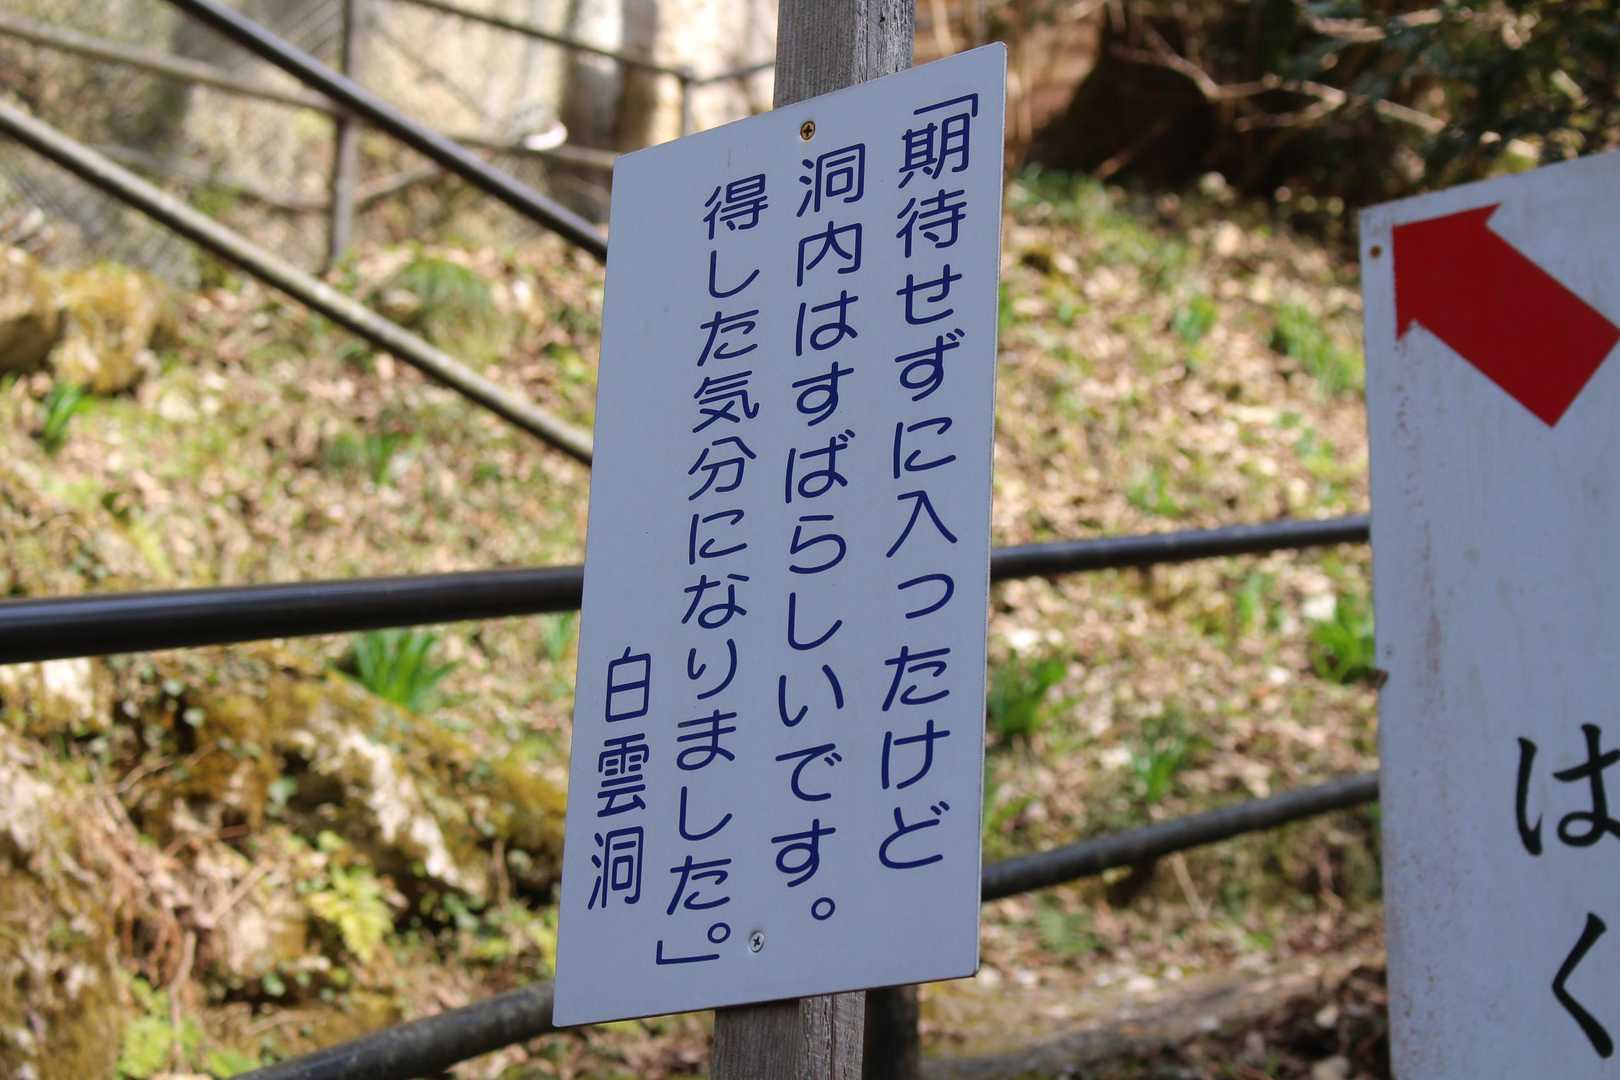 「期待せずに入ったけど
洞内はすばらしいです。
得した気分になりました。」
白雲洞
はく